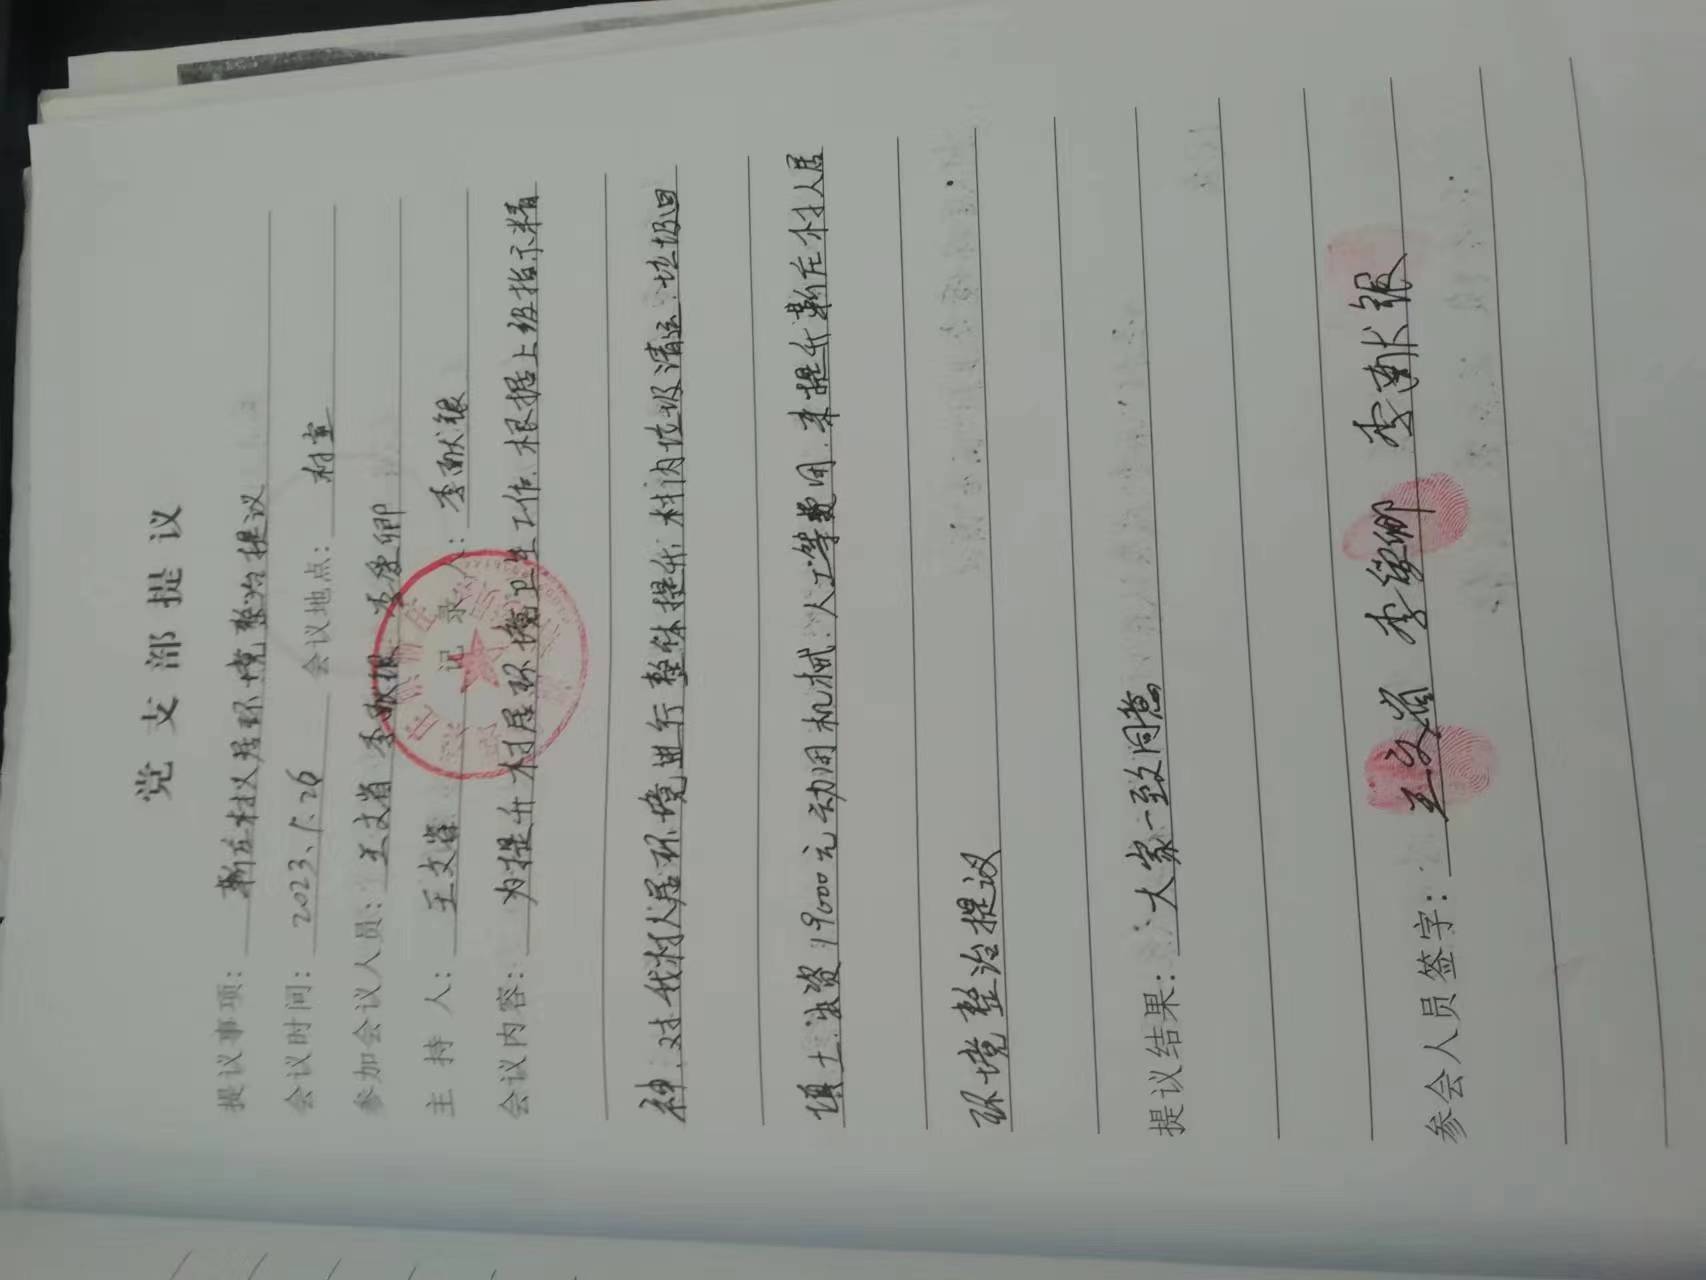 党支部提议
提议事项：靳庄村人居环境整治提议
会议时间：2023.5.26 会议地点：村室
参加会议人员：王文省 李献银 李爱卿
主持人：王文省 记录人：李献银
会议内容：为提升村居环境卫生工作.根据上级指示精
神.对我村人居环境进行整体提升.村内垃圾清运.垃圾回
填土.投资19000元动用机械.人工等费用.来提升靳庄村人居
环境整治提议
提议结果：大家一致同意
参会人员签字：王文省 李爱卿 李献银